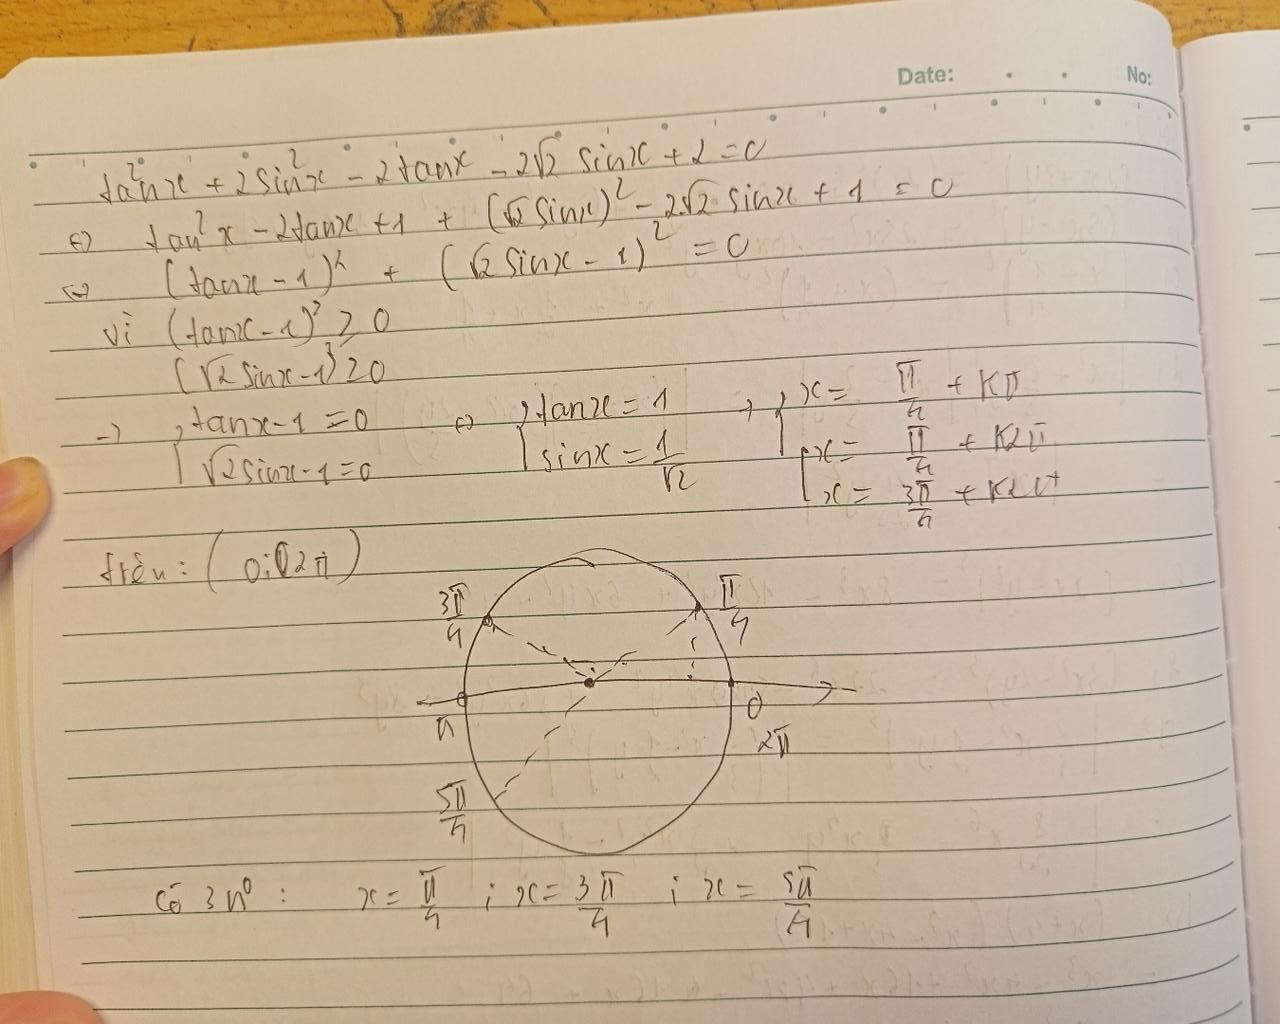 Date: No:
tan²x + 2sin²x - 2tanx - 2√2 sinx + 2 = 0
⇔ tan²x - 2tanx + 1 + (√2 sinx)² - 2√2 sinx + 1 = 0
⇔ (tanx - 1)² + (√2 sinx - 1)² = 0
vì (tanx - 1)² ≥ 0
(√2 sinx - 1)² ≥ 0
→ { tanx - 1 = 0 ⇔ { tanx = 1 → { x = π/4 + Kπ
√2 sinx - 1 = 0 sinx = 1/√2 [ x = π/4 + K2π
x = 3π/4 + K2π
trên: (0; 2π)
3π/4 π/4
π 0
2π
5π/4
có 3 n⁰ : x = π/4 ; x = 3π/4 ; x = 5π/4